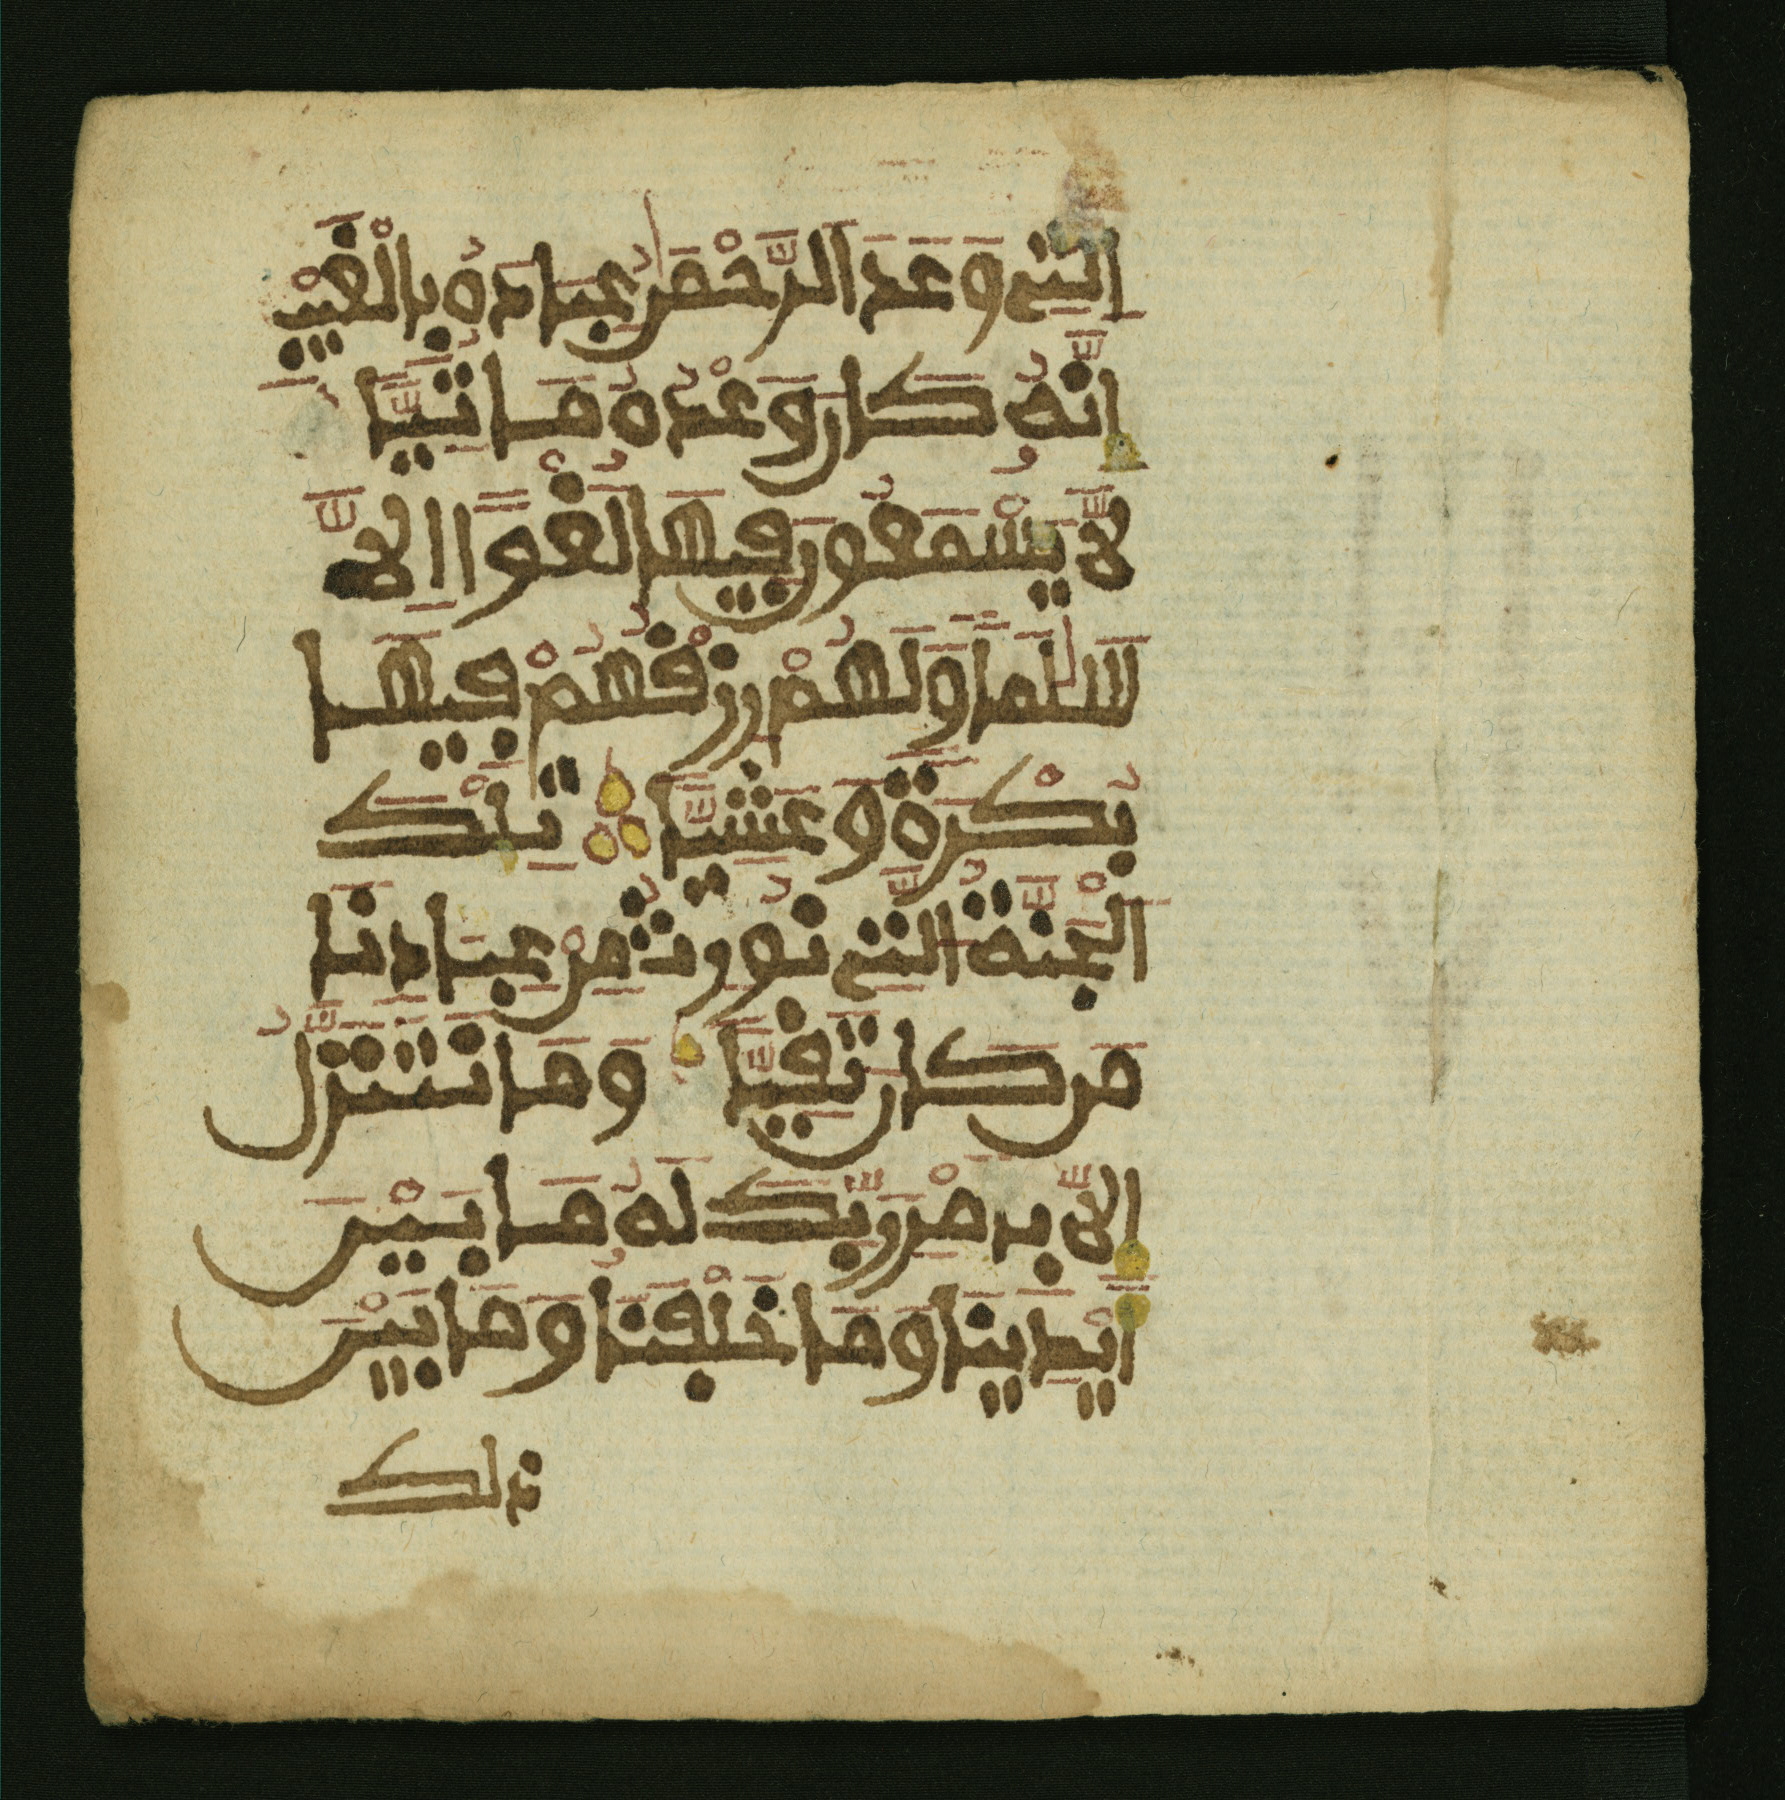 التي وَعَدَ الرَّحْمَٰنُ عِبَادَهُ بِالْغَيْبِ
إنَّهُ كَانَ وَعْدُهُ مَاتِيّاً
لاَّ يَسْمَعُونَ فِيهَا لَغْواً اِلاَّ
سَلَٰماً وَلَهُمْ رِزْقُهُمْ فِيهَا
بُكْرَةً وَعَشِيّاً تِلْكَ
الْجَنَّةُ التِي نُورِثُ مِنْ عِبَادِنَا
مَن كَانَ تَقِيّاً وَمَا نَتَنَزَّلُ
إلاَّ بِأَمْرِ رَبِّكَ لَهُ مَا بَيْنَ
أَيْدِينَا وَمَا خَلْفَنَا وَمَا بَيْنَ
ذلك